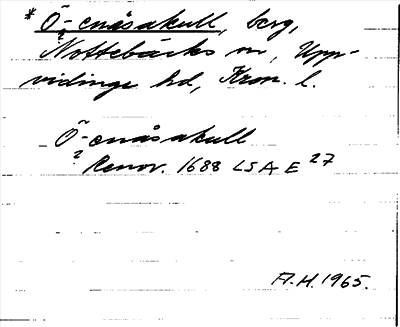 * Ö-cnåsakull, berg,
?
Nottebäcks sn, Upp-
vidinge hd, Kron. l.
Ö-cnåsakull
?
Renov. 1688 LSA E 27
A.H. 1965.